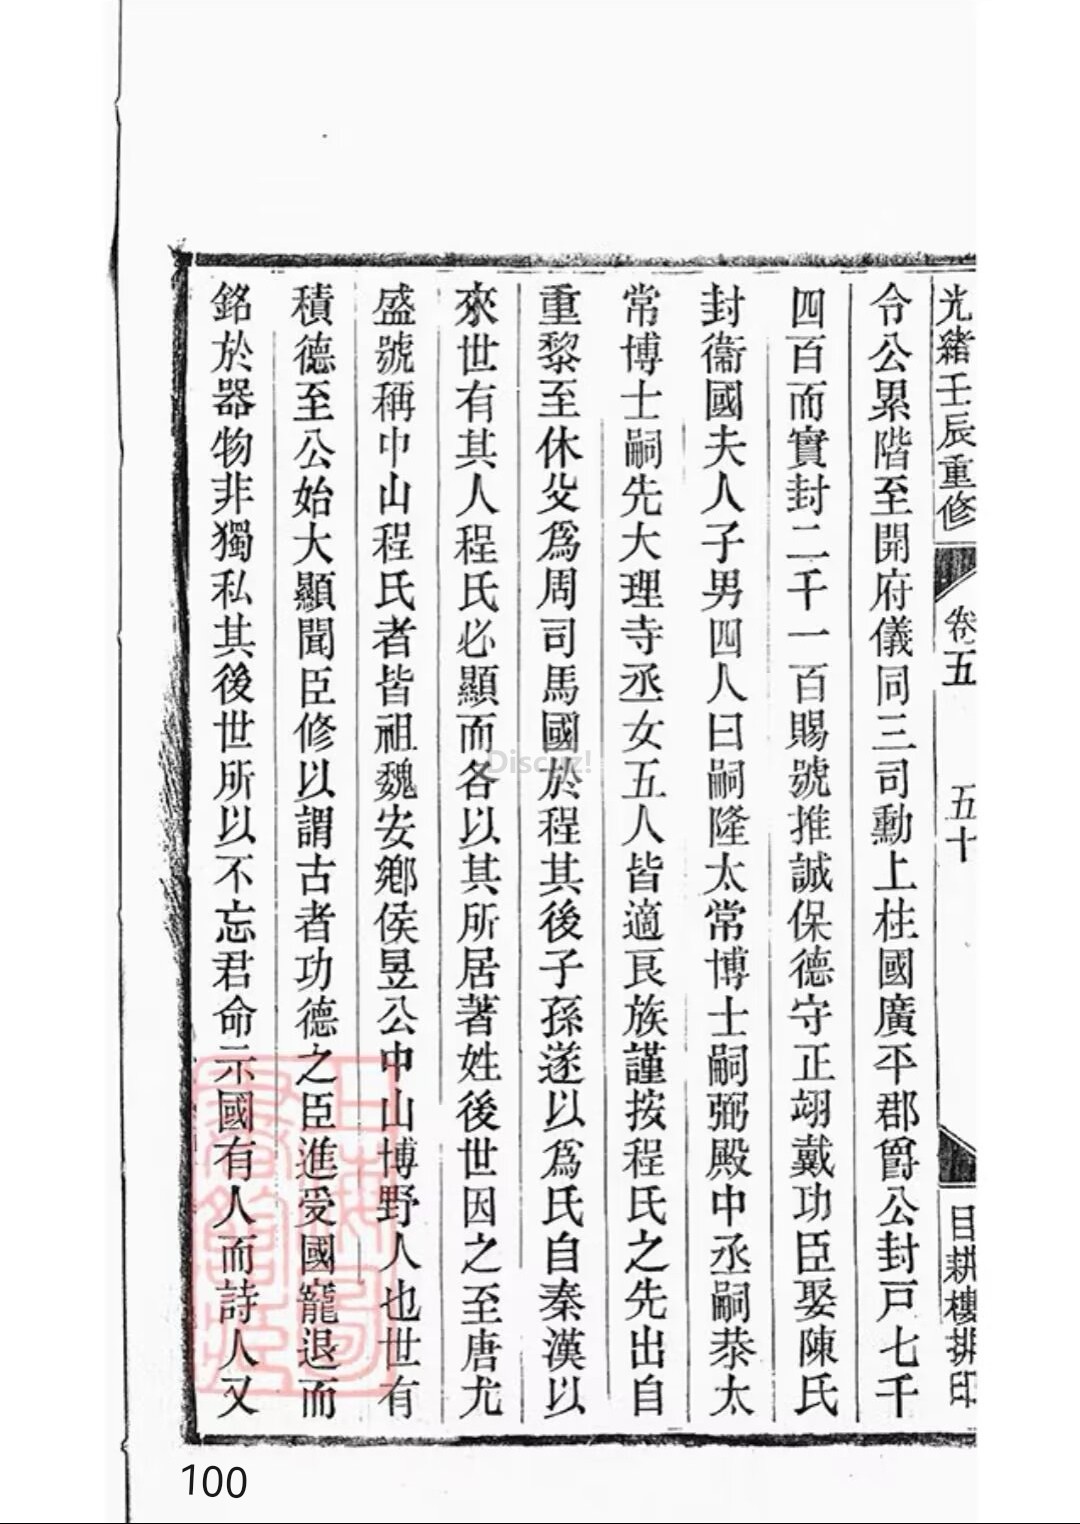 光緒壬辰重修
卷五
五十
目耕樓排印
令公累階至開府儀同三司勳上柱國廣平郡爵公封戸七千
四百而實封二千一百賜號推誠保德守正翊戴功臣娶陳氏
封衞國夫人子男四人曰嗣隆太常博士嗣弼殿中丞嗣恭太
常博士嗣先大理寺丞女五人皆適良族謹按程氏之先出自
重黎至休父爲周司馬國於程其後子孫遂以爲氏自秦漢以
來世有其人程氏必顯而各以其所居著姓後世因之至唐尤
盛號稱中山程氏者皆祖魏安鄕侯昱公中山博野人也世有
積德至公始大顯聞臣修以謂古者功德之臣進受國寵退而
銘於器物非獨私其後世所以不忘君命示國有人而詩人又
Discuz!
100